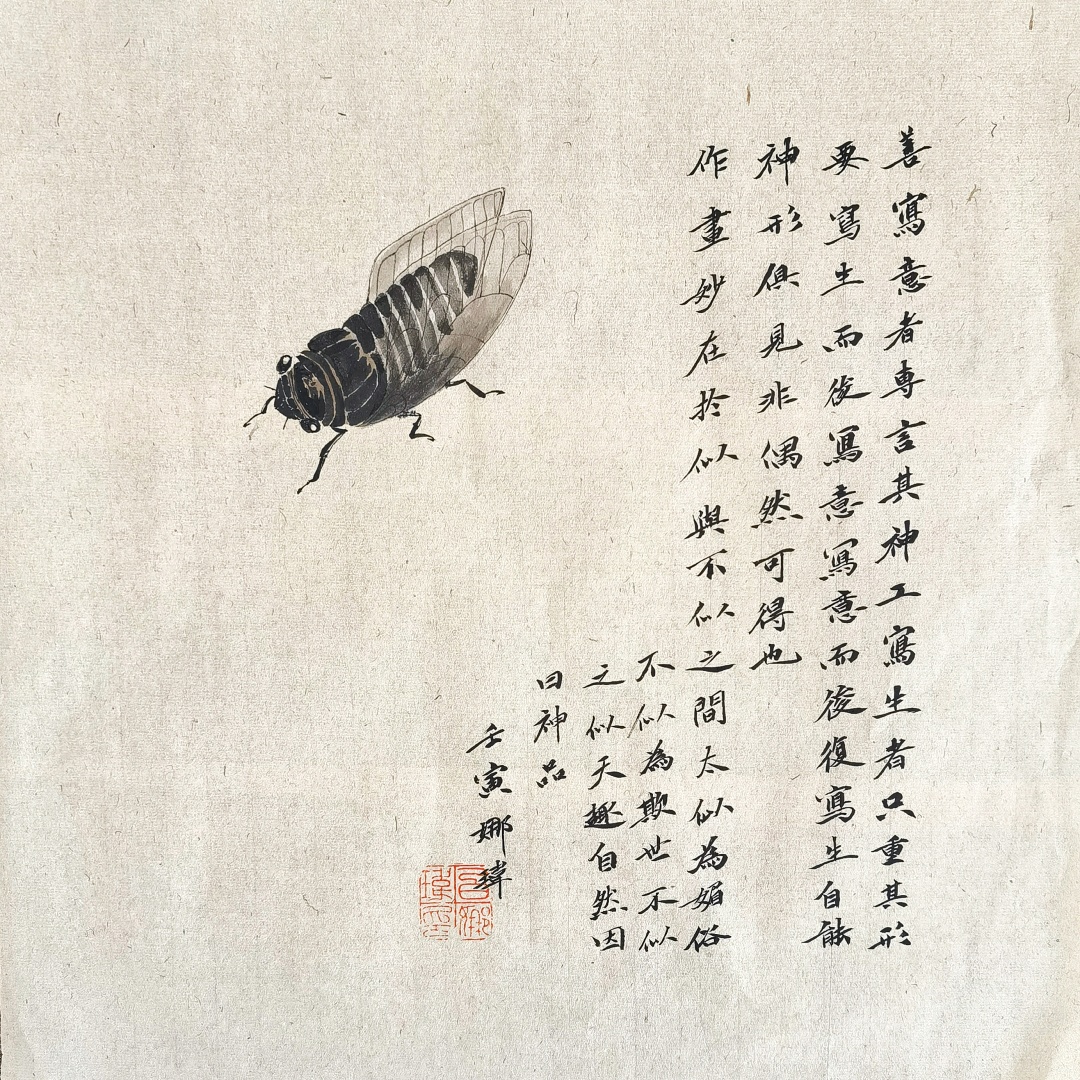 善寫意者專言其神工寫生者只重其形
要寫生而後寫意寫意而後復寫生自能
神形俱見非偶然可得也
作畫妙在於似與不似之間太似為媚俗
不似為欺世不似
之似天趣自然因
曰神品
壬寅娜瑋